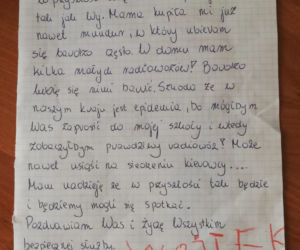 w przyszłość
tak jak Wy. Mama kupiła mi już
nawet mundur, w który ubieram
się bardzo często. W domu mam
kilka małych radiowozów! Bardzo
lubię się nimi bawić. Szkoda że w
naszym kraju jest epidemia, bo mógłbym
Was zaprosić do mojej szkoły i wtedy
zobaczyłbym prawdziwy radiowóz! Może
nawet usiąść na siedzeniu kierowcy...
Mam nadzieję że w przyszłości tak będzie
i będziemy mogli się spotkać.
Pozdrawiam Was i życzę Wszystkim
bezpiecznej służby